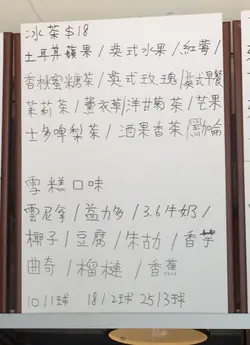 冰茶$18
土耳其蘋果/英式水果/紅莓/
香桃蜜糖茶/英式玫瑰/英式早餐
茉莉茶/薰衣草/洋甘菊茶/芒果
士多啤梨茶/酒果香茶/黑加侖
雪糕口味
雲尼拿/益力多/3.6牛奶/
椰子/豆腐/朱古力/香芋
曲奇/榴槤/香蕉
10/1球 18/2球 25/3球